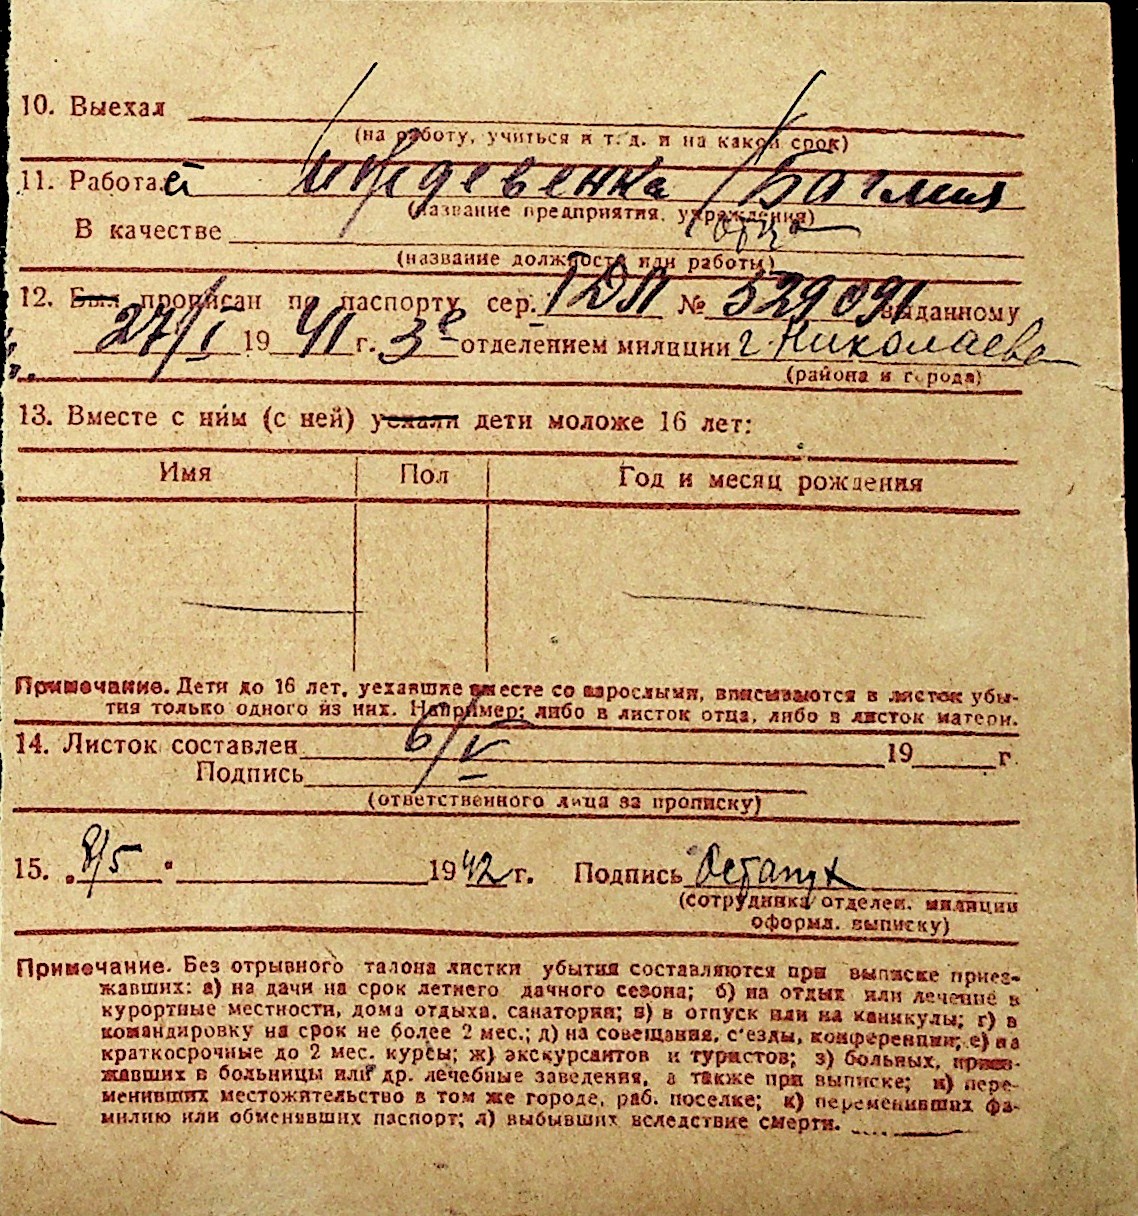 10. Выехал
(на работу, учиться и т. д. и на какой срок)
11. Работает иждевенка
(название предприятия, учреждения)
В качестве отца
(название должности или работы)
12. Был прописан по паспорту сер. № 529091 выданному
27/I 1941 г. 3е отделением милиции г. Николаева
(района и города)
13. Вместе с ним (с ней) уехали дети моложе 16 лет:
Имя Пол Год и месяц рождения
Примечание. Дети до 16 лет, уехавшие вместе со взрослыми, вписываются в листок убы-
тия только одного из них. Например: либо в листок отца, либо в листок матери.
14. Листок составлен 6/V 19 г.
Подпись
(ответственного лица за прописку)
15. „8/5" 1942 г. Подпись Остапук
(сотрудника отделен. милиции
оформл. выписку)
Примечание. Без отрывного талона листки убытия составляются при выписке приез-
жавших: а) на дачи на срок летнего дачного сезона; б) на отдых или лечение в
курортные местности, дома отдыха, санатории; в) в отпуск или на каникулы; г) в
командировку на срок не более 2 мес.; д) на совещания, с'езды, конференции; е) на
краткосрочные до 2 мес. курсы; ж) экскурсантов и туристов; з) больных, приез-
жавших в больницы или др. лечебные заведения, а также при выписке; и) пере-
менивших местожительство в том же городе, раб. поселке; к) переменивших фа-
милию или обменявших паспорт; л) выбывших вследствие смерти.